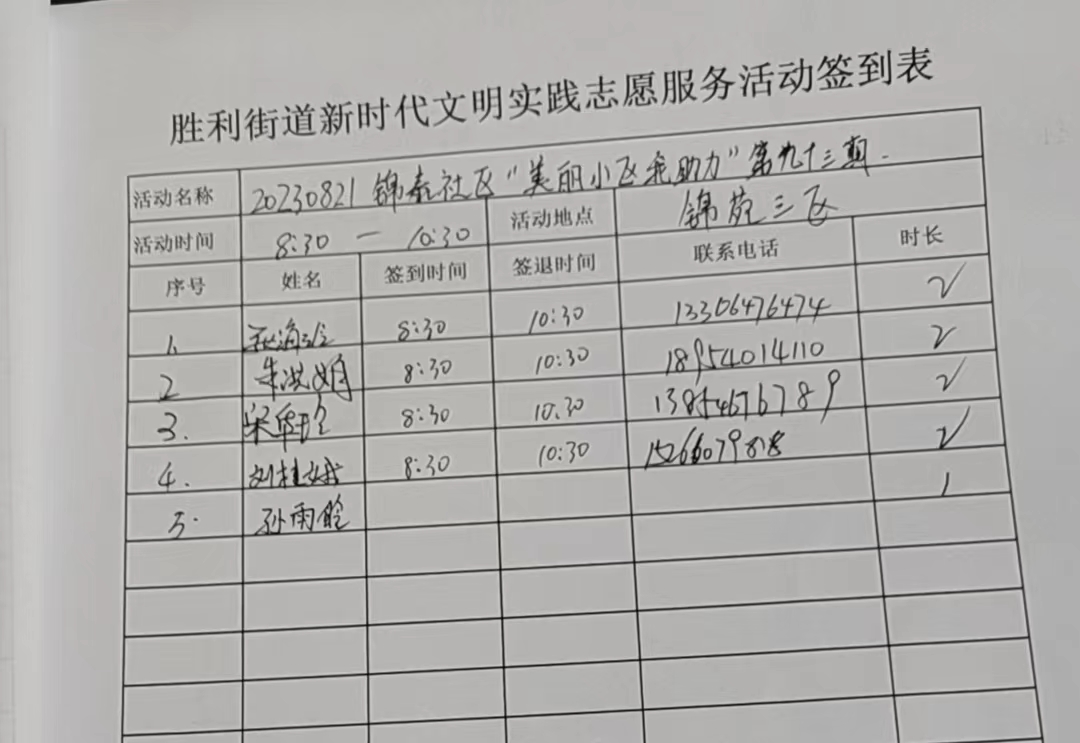 胜利街道新时代文明实践志愿服务活动签到表
活动名称 20230821 锦泰社区"美丽小区我助力"第九十三期.
活动时间 8:30 — 10:30 活动地点 锦苑三区
序号 姓名 签到时间 签退时间 联系电话 时长
1、 8:30 10:30 13306476474 2
2 朱洪娟 8:30 10:30 18954014110 2
3. 8:30 10:30 13854676789 2
4. 刘桂娥 8:30 10:30 2
5. 孙雨 1